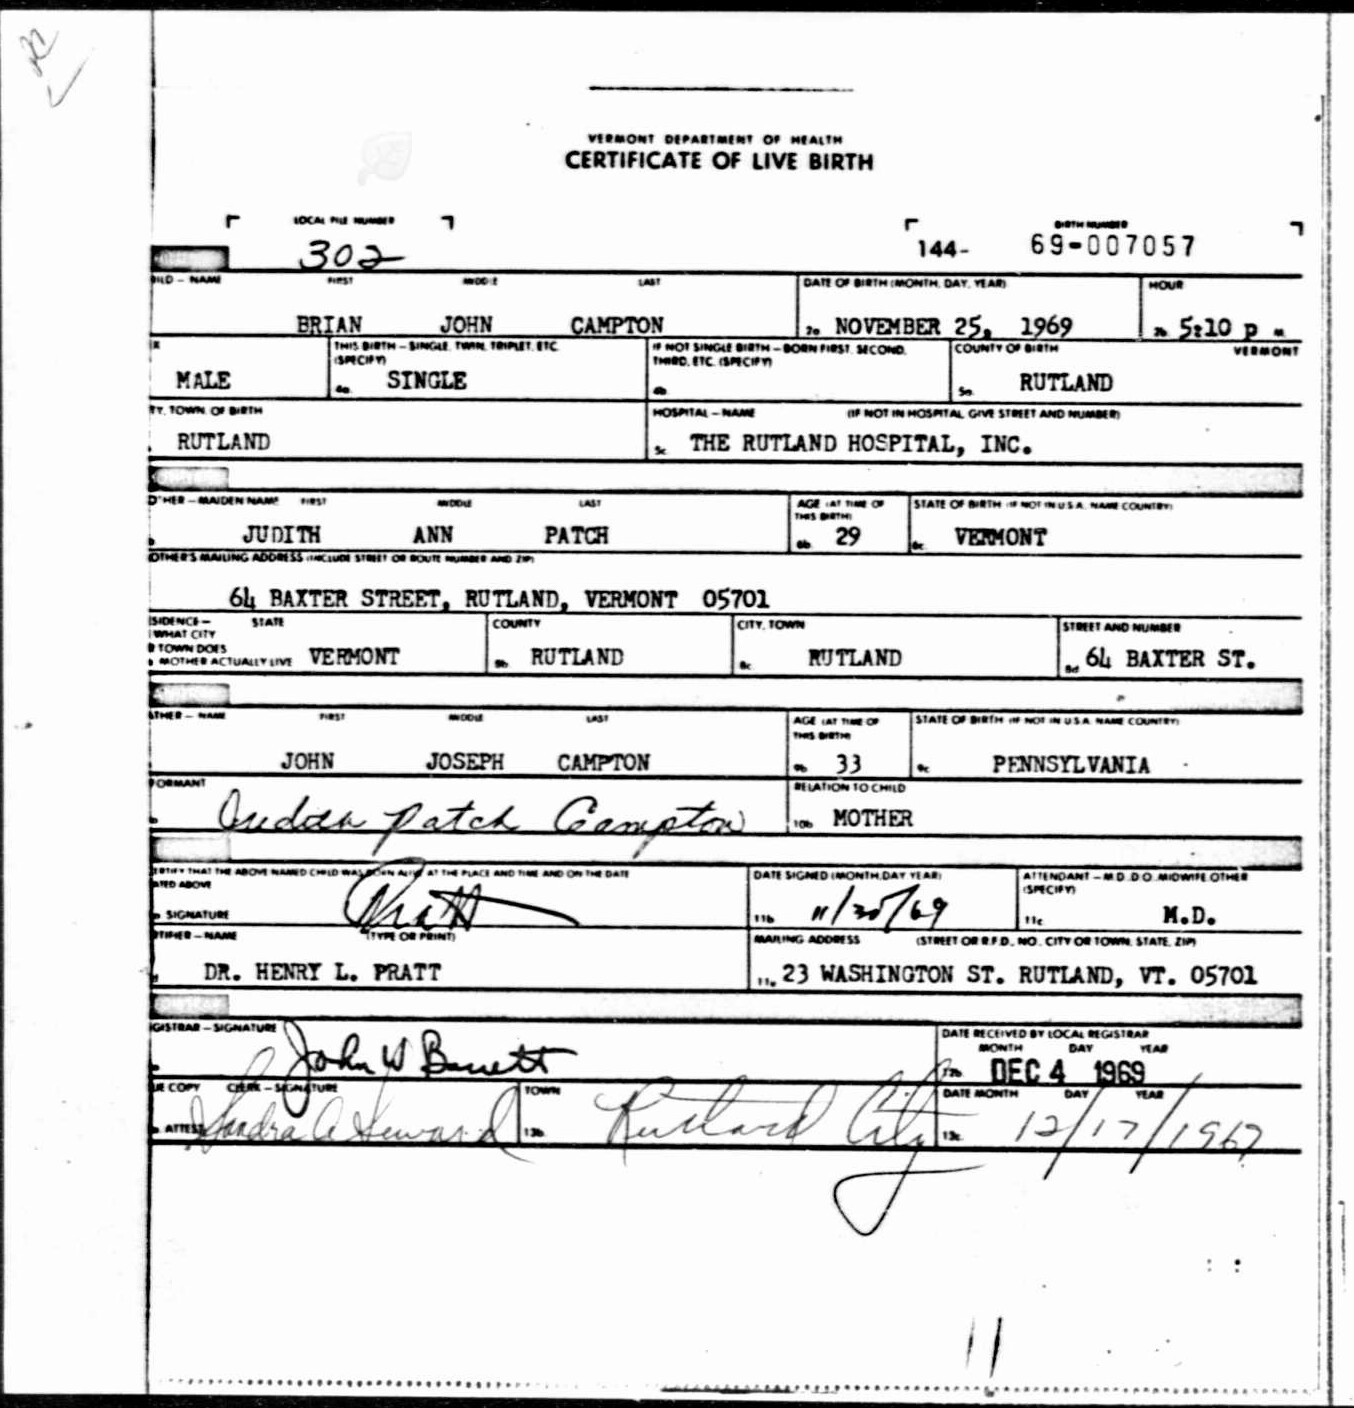 VERMONT DEPARTMENT OF HEALTH
CERTIFICATE OF LIVE BIRTH
LOCAL FILE NUMBER
BIRTH NUMBER
302
144- 69-007057
ILD – NAME FIRST MIDDLE LAST DATE OF BIRTH (MONTH, DAY, YEAR) HOUR
BRIAN JOHN CAMPTON 2a NOVEMBER 25, 1969 2b 5:10 P M
X THIS BIRTH – SINGLE, TWIN, TRIPLET, ETC. IF NOT SINGLE BIRTH – BORN FIRST, SECOND, COUNTY OF BIRTH VERMONT
(SPECIFY) THIRD, ETC. (SPECIFY)
MALE 4a. SINGLE 4b 5a. RUTLAND
TY, TOWN, OF BIRTH HOSPITAL – NAME (IF NOT IN HOSPITAL, GIVE STREET AND NUMBER)
RUTLAND 5c THE RUTLAND HOSPITAL, INC.
OTHER – MAIDEN NAME FIRST MIDDLE LAST AGE (AT TIME OF THIS BIRTH) STATE OF BIRTH (IF NOT IN U.S.A. NAME COUNTRY)
JUDITH ANN PATCH 6b. 29 6c. VERMONT
OTHER'S MAILING ADDRESS (INCLUDE STREET OR ROUTE NUMBER AND ZIP)
64 BAXTER STREET, RUTLAND, VERMONT 05701
SIDENCE – STATE COUNTY CITY, TOWN STREET AND NUMBER
WHAT CITY
R TOWN DOES
MOTHER ACTUALLY LIVE VERMONT 8b. RUTLAND 8c RUTLAND 8d 64 BAXTER ST.
ATHER – NAME FIRST MIDDLE LAST AGE (AT TIME OF THIS BIRTH) STATE OF BIRTH (IF NOT IN U.S.A. NAME COUNTRY)
JOHN JOSEPH CAMPTON 9b 33 9c PENNSYLVANIA
FORMANT RELATION TO CHILD
Judith Patch Campton 10b MOTHER
ERTIFY THAT THE ABOVE NAMED CHILD WAS BORN ALIVE AT THE PLACE AND TIME AND ON THE DATE DATE SIGNED (MONTH, DAY, YEAR) ATTENDANT – M.D., D.O., MIDWIFE, OTHER
ATED ABOVE (SPECIFY)
SIGNATURE Pratt 11b 11/30/69 11c M.D.
RTIFIER – NAME (TYPE OR PRINT) MAILING ADDRESS (STREET OR R.F.D., NO., CITY OR TOWN, STATE, ZIP)
DR. HENRY L. PRATT 11e 23 WASHINGTON ST. RUTLAND, VT. 05701
GISTRAR – SIGNATURE DATE RECEIVED BY LOCAL REGISTRAR
MONTH DAY YEAR
John W Barrett 12b DEC 4 1969
UE COPY CLERK – SIGNATURE TOWN DATE MONTH DAY YEAR
ATTEST Sandra A Seward 13b. Rutland City 13c. 12/17/1969